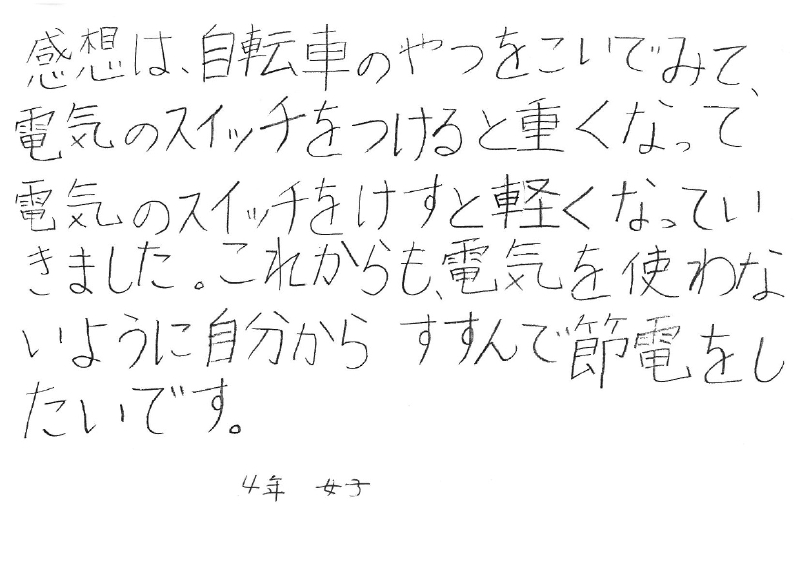 感想は、自転車のやつをこいでみて、
電気のスイッチをつけると重くなって
電気のスイッチをけすと軽くなってい
きました。これからも、電気を使わな
いように自分から すすんで節電をし
たいです。
4年 女子